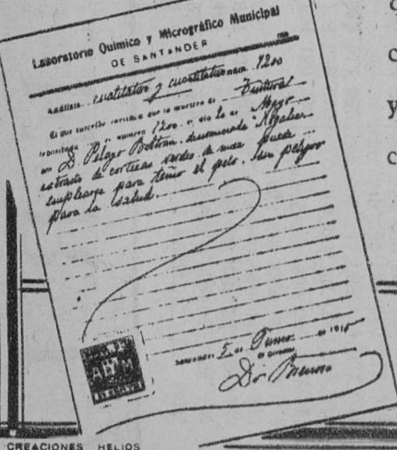 Laboratorio Químico y Micrográfico Municipal
DE SANTANDER
Análisis cualitativo y cuantitativo núm. 1200
El que suscribe certifica que la muestra de Tintoral
número 1200 el día 20 de Mayo
por D. Pelayo Beltrán, denominada
extracto de cortezas verdes de nuez puede
emplearse para teñir el pelo, sin peligro
para la salud.
Santander 5 de Junio de 191
El Director
Dr.
CREACIONES HELIOS